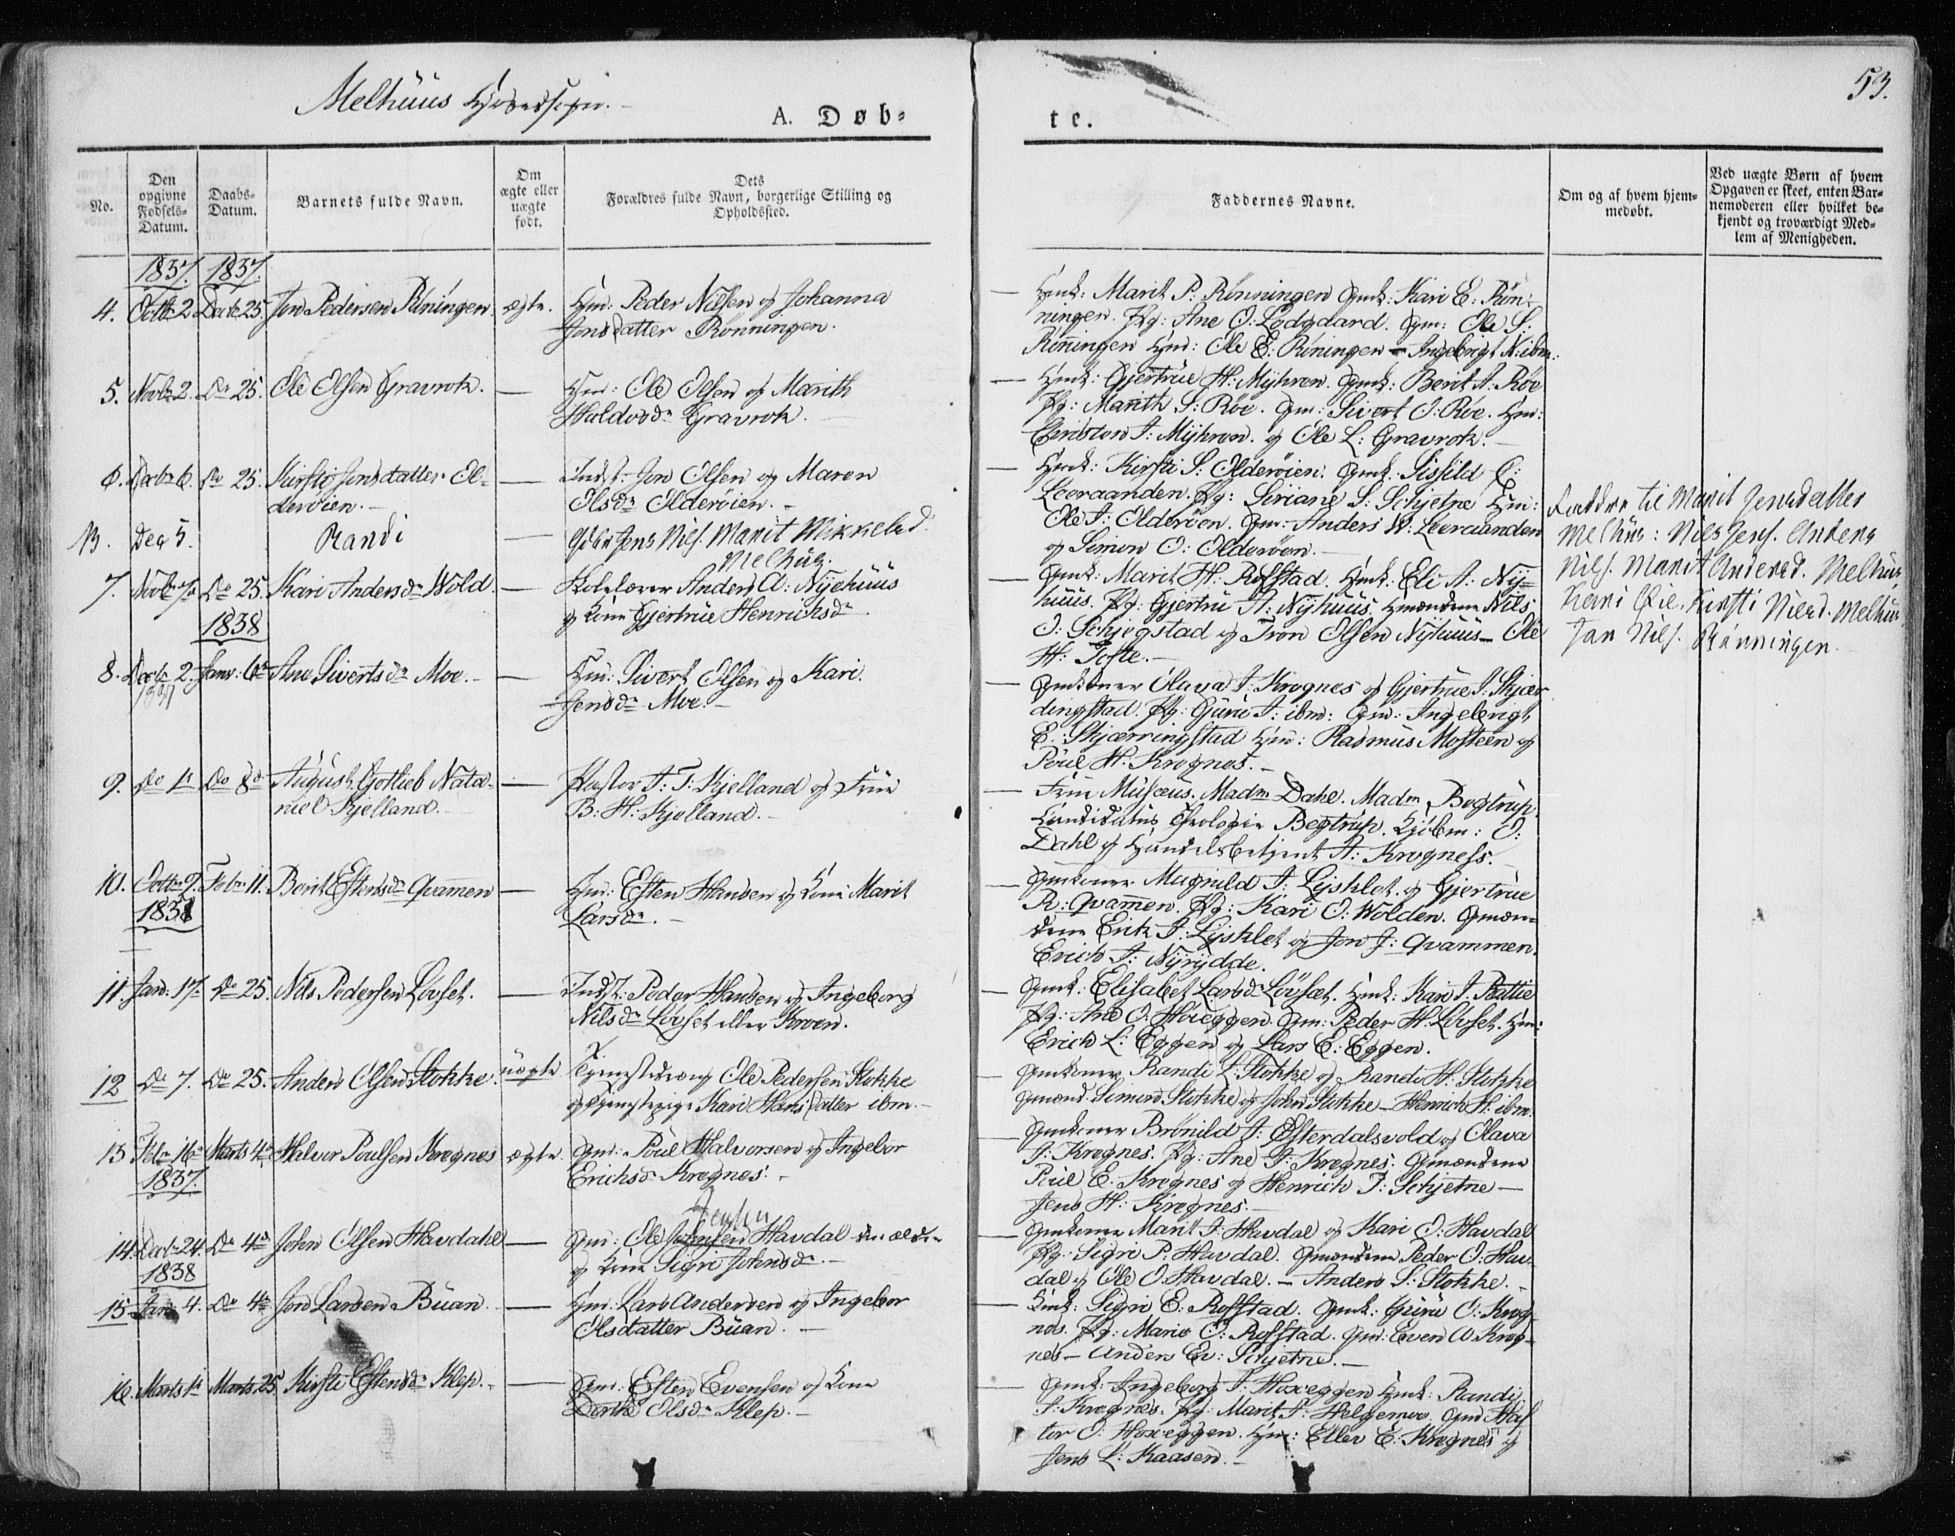 Melhüüs Hovedsogn.
53.
A. Døb-
te.
No.
Den opgivne Fødsels-Datum.
Daabs-Datum.
Barnets fulde Navn.
Om ægte eller uægte født.
Dets Forældres fulde Navn, borgerlige Stilling og Opholdssted.
Faddernes Navne.
Om og af hvem hjem-medøbt.
Ved uægte Børn af hvem Opgaven er skeet, enten Bar-nemoderen eller hvilket be-kjendt og troværdigt Med-lem af Menigheden.
1837. 1837.
4. Octbr 2. Decbr 25. Jon Pedersen Rüningen. ægte. Hm: Peder Nilsen og Johanna
Jonsdatter Rönningen.
Hmk: Marit P: Rønningen Gmk: Kari E: Røn-
ningen. Pg: Ane O: Lodgaard. Gm: Ole S:
Röningen Hm: Ole E: Röningen - Ingebrigt N: ibm:
5. Novbr 2. Do 25. Ole Olsen Gravrok. — Hm: Ole Olsen og Marith
Haldosdr Gravrok.
Hmk: Gjertrüe H: Myhren. Gmk: Berit A: Røe
Pg: Marith S: Röe. Gm: Sivert O: Røe. Hm:
Christen I: Mÿhren. og Ole L: Gravrok.
6. Decbr 6. Do 25. Kirsti Jonsdatter Ol-
deröien. — Indst: Jon Olsen og Maren
Olsdr Olderöien.
Hmk: Kirsti S: Olderöien. Gmk: Sissild E:
Leeraanden. Pg: Siriane S: Schjetne Hm:
Ole I: Olderöen. Gm: Anders W: Leeraanden
og Simon O: Olderöen.
13. Dec 5. Randi — Gdbr Jens Nils. Marit Mikkelsd.
Melhus
Faddre til Marit Jensdatter
Melhus: Nils Jens. Anders
Nils. Marit Andersd. Melhus
Kari Ole. Kirsti Nilsd. Melhus
Jan Nils. Rönningen.
7. Novbr 7. Do 25. Kari Andersdr Wold. — Skolelærer Anders A: Nyehüüs
og Kone Gjertrüe Henrichsdr
Gmk: Marit H: Rofstad. Hmk: Eli A: Ny-
hüüs. Pg: Gjertrü A: Nyhüüs. Hmændene Nils
O: Schjegstad og Tron Olsen Nyhüüs - Ole
H: Tofte.
1838
8. Decbr 2. Janv: 6te Ane Sivertsdr Moe. — Hm: Sivert Olsen og Kari
Jensdr Moe.
1837
Gmkoner Olava I: Krognes og Gjertrüe I: Skjær
dingstad. Pg: Gurü I: ibm: Gm: Ingebrigt
E: Skjærringstad Hm: Rasmus Mosteen og
Poül H: Krognes.
9. Do 1te Do 8de August Gotlieb Nata-
niel Kjelland. — Pastor I: T: Kjelland og Früe
B: H: Kjelland.
Früe Musæus. Madm Dahl. Madm Begtrüp.
Kandidatus Theologie Begtrüp. Kjöbm: O:
Dahl og Handelsbetjent A: Krogness.
10. Octbr 9. Febr 11. Berit Estensdr Qvamen — Hm: Esten Hansen og Kone Marit
Larsdr.
1838
Gmkoner Magnild I: Lysklet. og Gjertrüe
R: Qvamen. Pg: Kari O: Wolden. Gmæn-
dene Erik I: Lysklet og Jon J: Qvammen.
Erich I: Nyrydde.
11. Jan: 17. Do 25. Nils Pedersen Lövset. — Indst: Peder Hansen og Ingeborg
Nilsdr Lövset eller Kroen.
Gmk: Elisabet Larsdr Lövset. Hmk: Kari I: Rattie
Pg: Ane O: Höieggen. Gm: Peder H: Lövset. Hm:
Erich L: Eggen og Lars E: Eggen.
12 Do 7. Do 25. Anders Olsen Stokke. üægte Tjenestedreng Ole Pedersen Stokke
og Tjenestepige Kari Hansdatter ibm.
Gmkoner Randi L: Stokke og Randi H: Stokke
Gmænd. Simon Stokke og John Stokke - Henrich H: ibm.
13 Febr 16de Marts 4de Halvor Poulsen Krognes ægte. Gm: Poül Halvorsen og Ingebor
Erichsdr Krognes.
1837.
Gmkoner Brönild I: Österdalsvold og Olava
I: Krognes. Pg: Ane I: Krognes. Gmændene
Poül E: Krognes og Henrich I: Schjetne —
Jens H: Krognes.
Jensen
14. Decbr 24. Do 4de John Olsen Havdahl — Gm: Ole Johnsen Havdal den ældre
og Kone Sigri Johnsdr.
1838
Gmkone Marit I: Havdal og Kari O: Havdal
Pg: Sigri P: Havdal. Gmændene Peder O: Hav-
dal og Ole O: Havdal. - Anders S: Stokke.
15 Jan 4. Do 4de Jon Larsen Büan — Hm: Lars Andersen og Ingebor
Olsdatter Büan.
Hmk: Sigri E: Rofstad. Gmk: Gürü O: Krog-
nes. Pg: Marie O: Rofstad. Gm: Even A Krog-
nes - Anders Ev: Schjetne.
16. Marts 1te Marts 25 Kirsti Estensdr Klep. Gm: Esten Evensen og Kone
Dorthe Olsdr Klep.
Gmk: Ingeborg I: Hoxeggen Hmk: Randi
I: Krognes. Pg: Marit I: Helgemo. Gm Haf
tor O: Hoxeggen. Hm: Ellev E: Krognes og
Jens L: Kaasen.